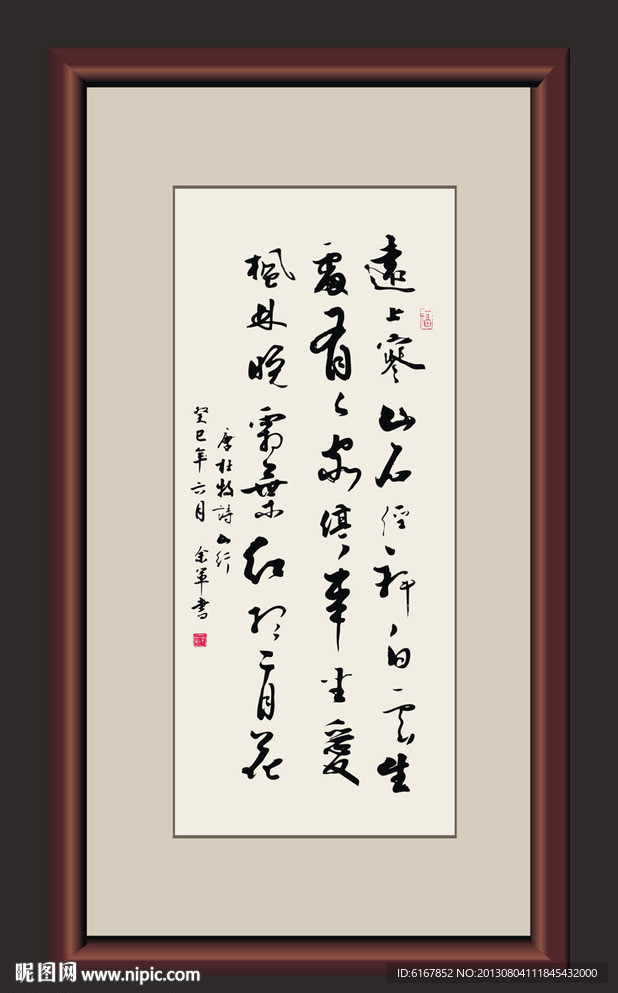 福
遠上寒山石徑斜白雲生
處有人家停車坐愛
楓林晚霜葉紅於二月花
唐杜牧詩山行
癸巳年六月 余軍書
昵图网 www.nipic.com
ID:6167852 NO:20130804111845432000